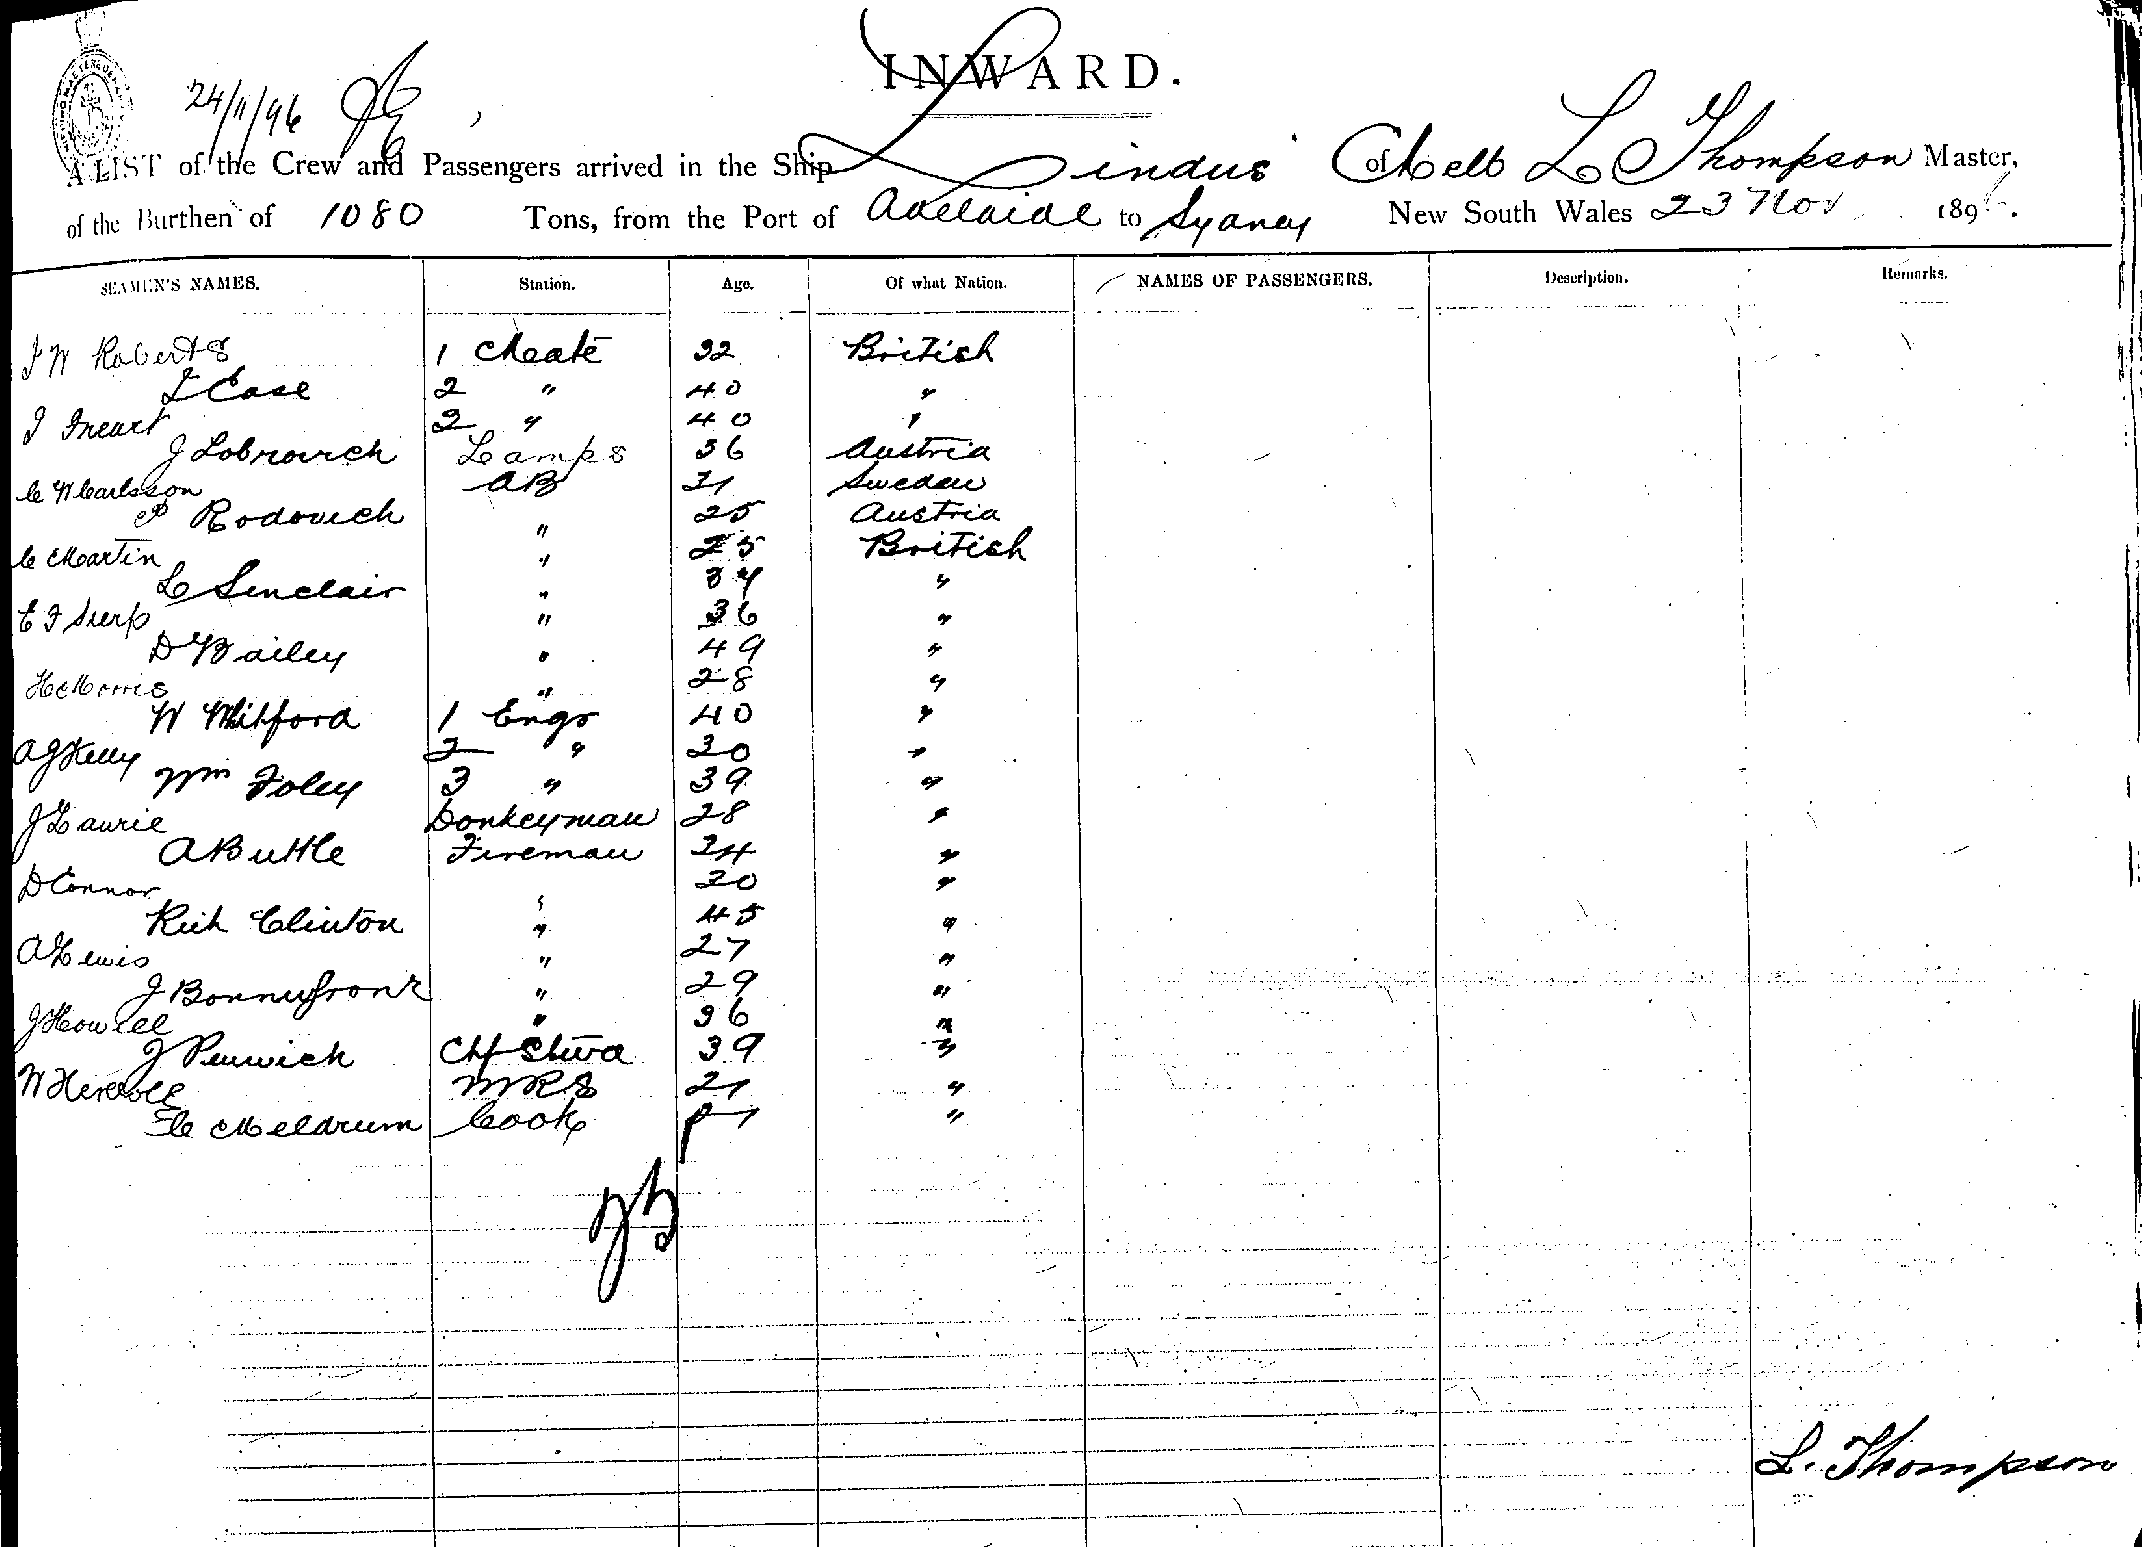 INWARD.
24/11/96
A LIST of the Crew and Passengers arrived in the Ship Lindus of Melb L Thompson Master,
of the Burthen of 1080 Tons, from the Port of Adelaide to Sydney New South Wales 23 Nov 1896.
SEAMEN'S NAMES. Station. Age. Of what Nation. NAMES OF PASSENGERS. Description. Remarks.
J W Roberts 1 Mate 32 British
J Case 2 " 40 "
J 2 " 40 "
J Lobrovich Lamps 36 Austria
C W Carlsson AB 21 Sweden
P Rodovich " 25 Austria
C Martin " 25 British
L Sinclair " 34 "
E F " 36 "
D Bailey " 49 "
H Morris " 28 "
W Whitford 1 Engr 40 "
A J Kelly 2 " 30 "
Wm Foley 3 " 39 "
J Laurie Donkeyman 28 "
A Buttle Fireman 24 "
D Connor " 30 "
Rich Clinton " 45 "
A Lewis " 27 "
J " 29 "
J Howell " 36 "
J Penwich Ch Stwd 39 "
W MRS 21 "
C Meldrum Cook "
L. Thompson